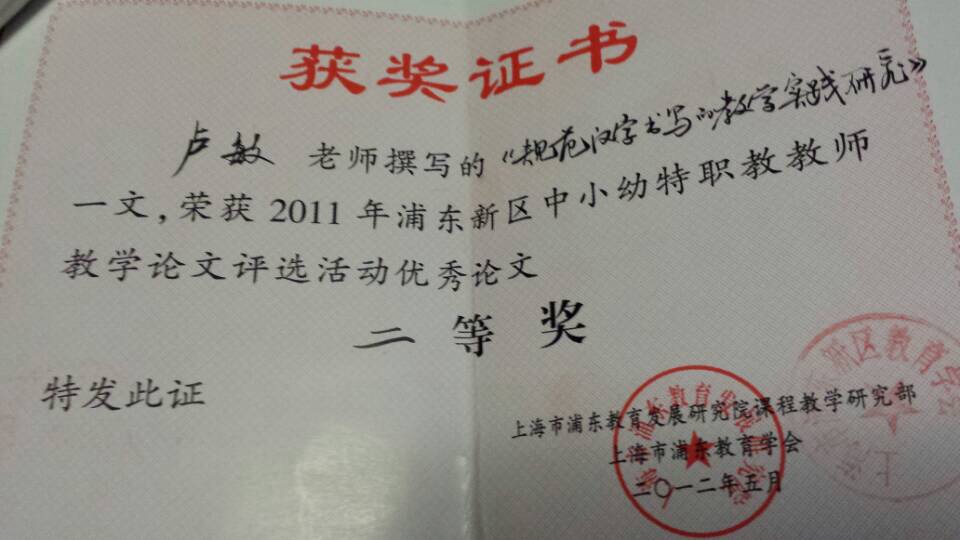 获奖证书
卢敏 老师撰写的《规范汉字书写的教学实践研究》
一文,荣获2011年浦东新区中小幼特职教教师
教学论文评选活动优秀论文
二等奖
特发此证
上海市浦东教育发展研究院课程教学研究部
上海市浦东教育学会
二〇一二年五月
新区教育学会